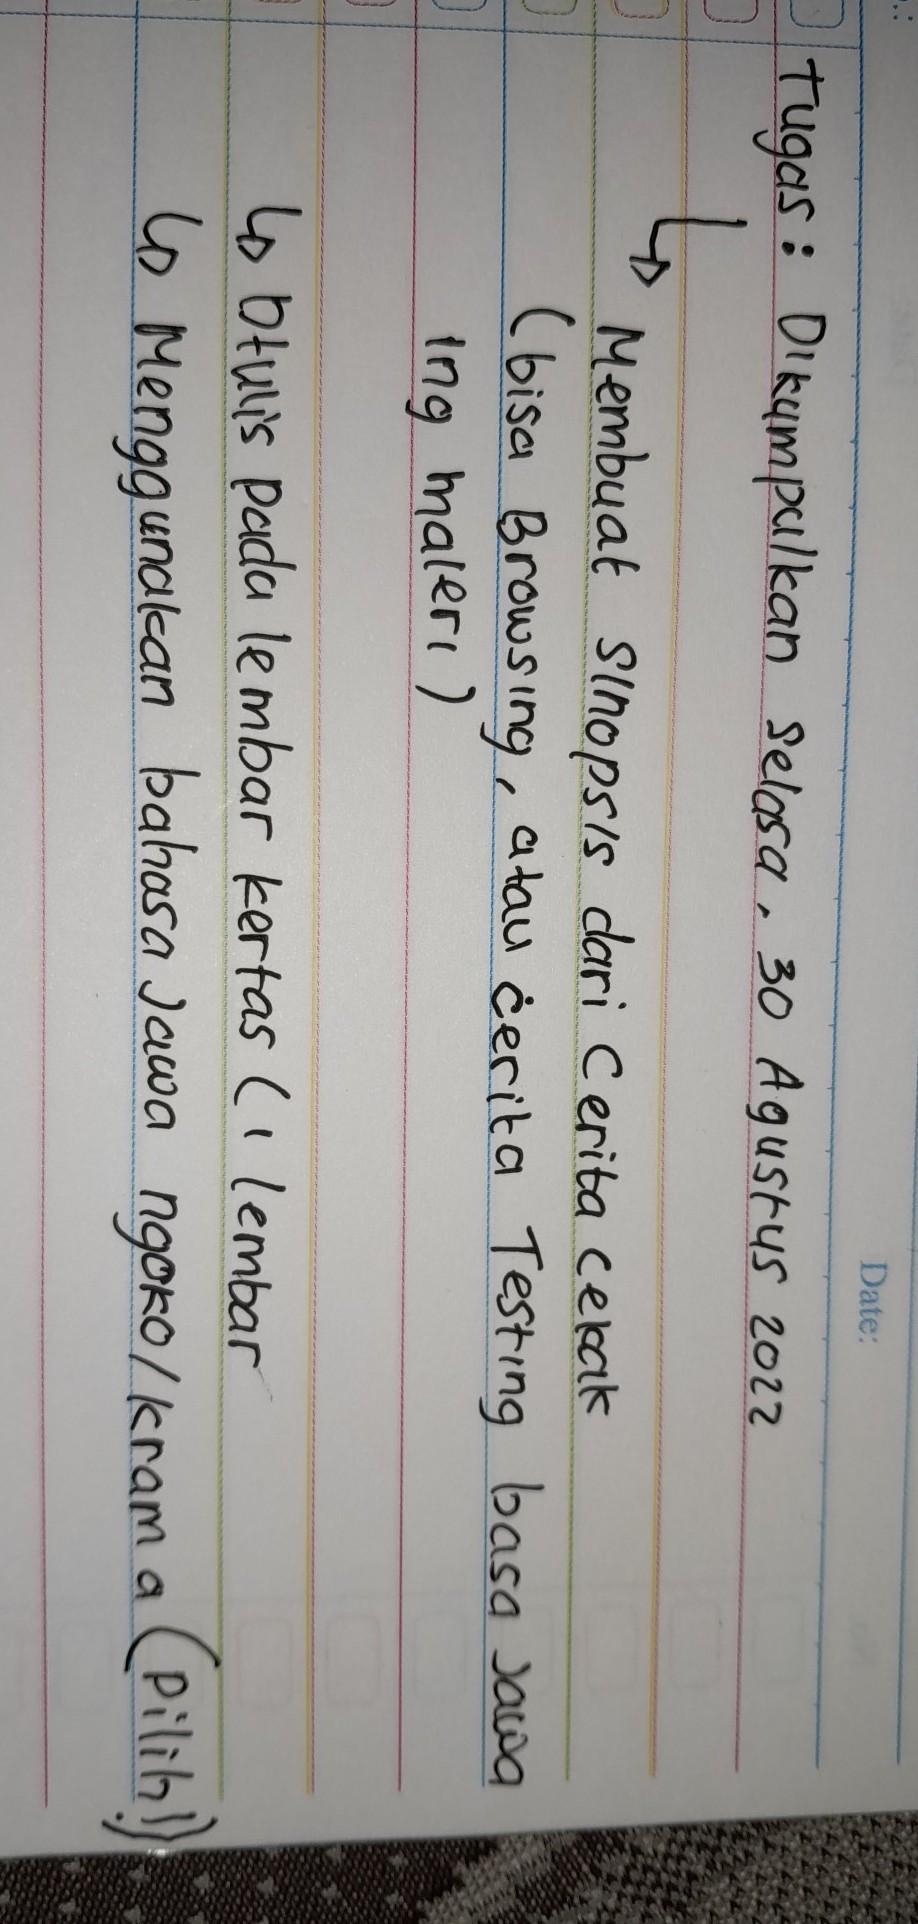 Date:
Tugas : Dikumpulkan Selasa, 30 Agustus 2022
↳ Membuat sinopsis dari Cerita cekak
(bisa Browsing, atau cerita Testing basa Jawa
ing materi)
↳ Dtulis pada lembar kertas (1 lembar
↳ Menggunakan bahasa Jawa ngoko/krama (pilih!)